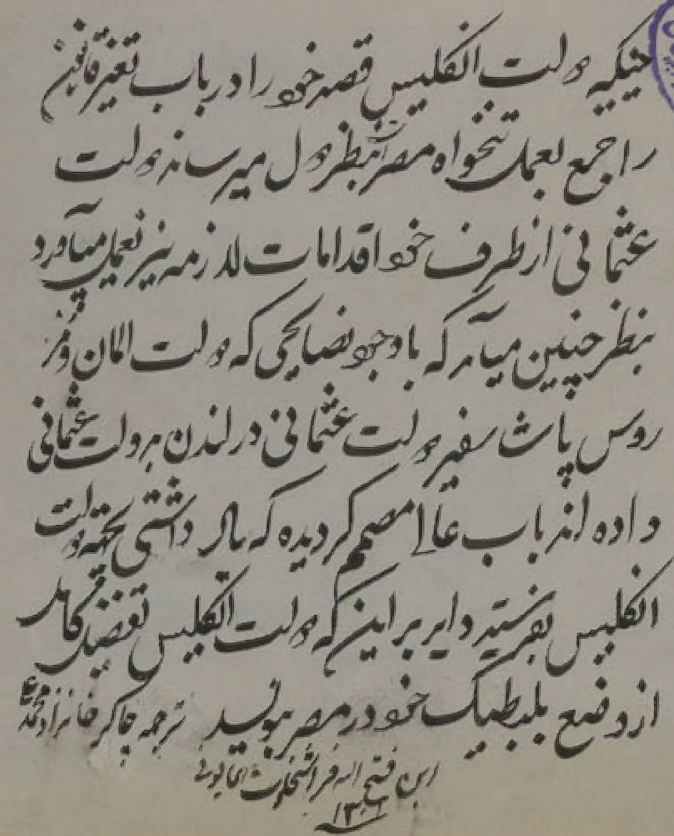 حینیکه دولت انگلیس قصد خود را در باب تغیر قانون
راجع بعمل تنخواه مصر بنظر دول میرساند دولت
عثمانی از طرف خود اقدامات لازمه نیز بعمل میآورد
بنظر چنین میآمد که با وجود نصایحی که دولت المان و
روس پاشا سفیر دولت عثمانی در لندن بدولت عثمانی
داده اند باب عالی مصمم گردیده که یادداشتی بجهة دولت
انگلیس بفرستد دایر بر این که دولت انگلیس تفصیل کامل
از وضع بلیطیک خود در مصر بنویسد ترجمه چاکر خانه زاد محمد علی
ابن فتح الله فراشخلوت همایونی